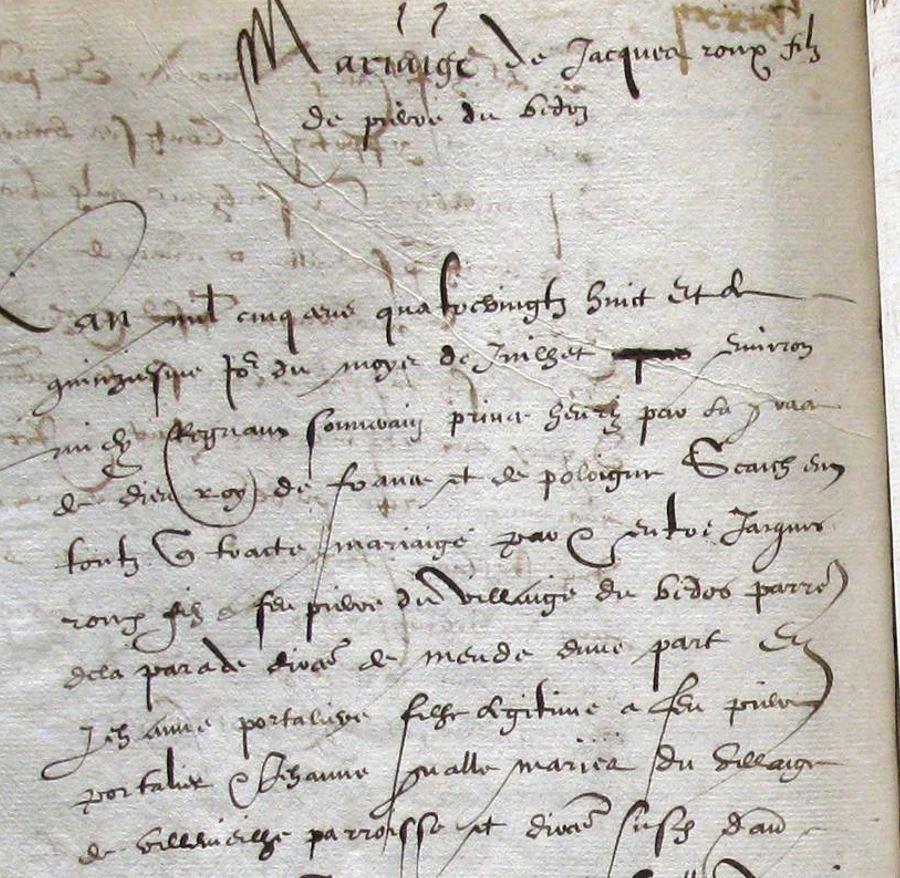 Mariaige de Jacques roux filz
de pierre du bedoz
L'an mil cinq cens quatrevingtz huict et le
quinzuesme jor du moys de Juilhet environ
midy Regnant souverain prince henry par la grace
de dieu roy de france et de poloigne Scaichent
toutz q traicte mariaige par & entre Jacques
roux filz a feu pierre du villaige du bedos parre
de la parade dioces de mende dune part Et
Jehanne portaliere filhe legitime a feu pierre
portalier & Jehanne malle mariés du villaige
de villevieilhe parroisse et dioces susd daut